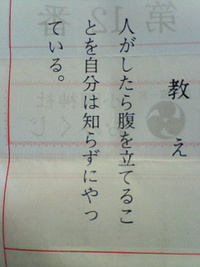 教え
人がしたら腹を立てるこ
とを自分は知らずにやっ
ている。